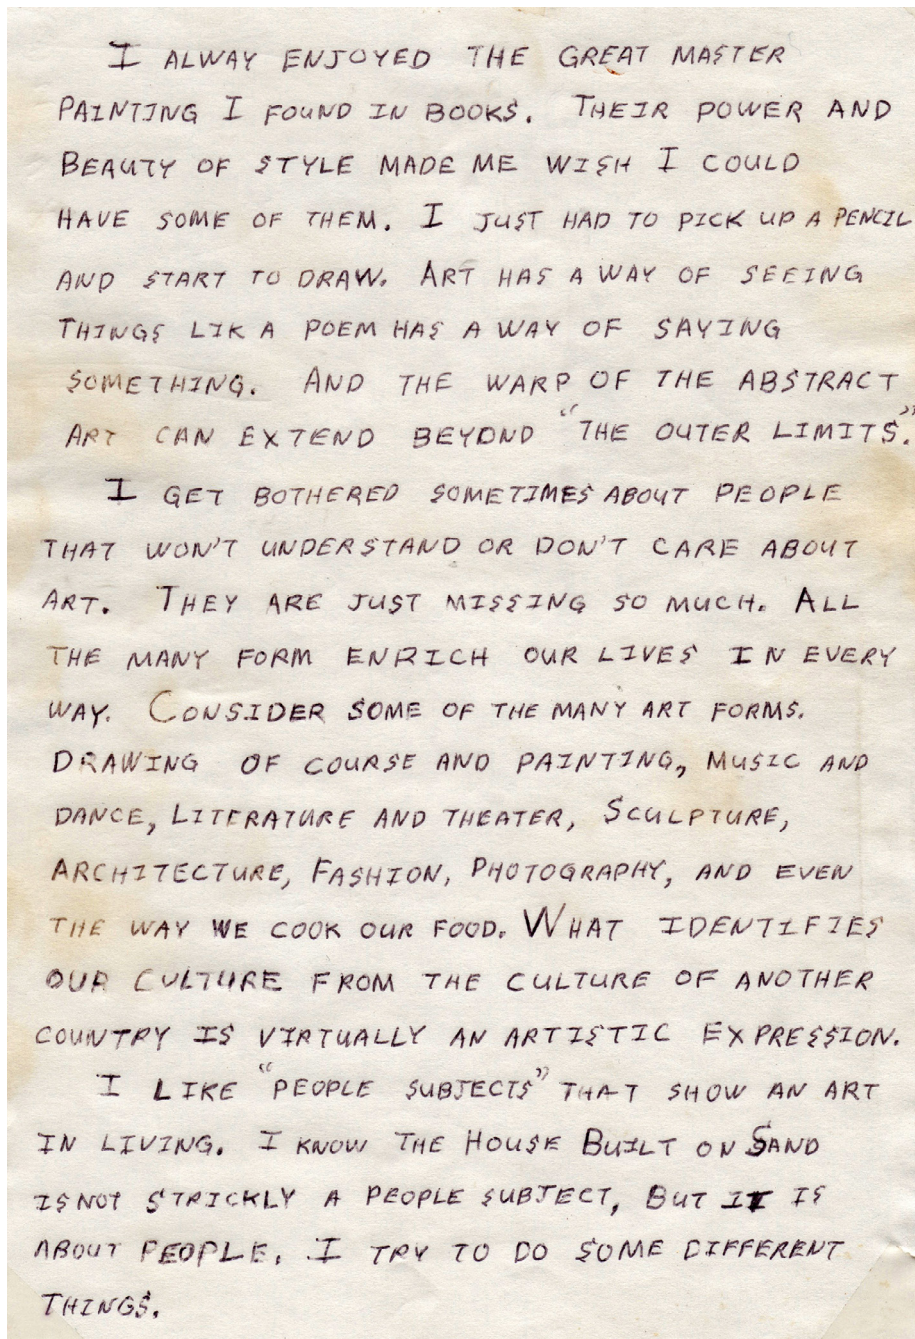 I ALWAY ENJOYED THE GREAT MASTER
PAINTING I FOUND IN BOOKS. THEIR POWER AND
BEAUTY OF STYLE MADE ME WISH I COULD
HAVE SOME OF THEM. I JUST HAD TO PICK UP A PENCIL
AND START TO DRAW. ART HAS A WAY OF SEEING
THINGS LIK A POEM HAS A WAY OF SAYING
SOMETHING. AND THE WARP OF THE ABSTRACT
ART CAN EXTEND BEYOND "THE OUTER LIMITS".
I GET BOTHERED SOMETIMES ABOUT PEOPLE
THAT WON'T UNDERSTAND OR DON'T CARE ABOUT
ART. THEY ARE JUST MISSING SO MUCH. ALL
THE MANY FORM ENRICH OUR LIVES IN EVERY
WAY. CONSIDER SOME OF THE MANY ART FORMS.
DRAWING OF COURSE AND PAINTING, MUSIC AND
DANCE, LITERATURE AND THEATER, SCULPTURE,
ARCHITECTURE, FASHION, PHOTOGRAPHY, AND EVEN
THE WAY WE COOK OUR FOOD. WHAT IDENTIFIES
OUR CULTURE FROM THE CULTURE OF ANOTHER
COUNTRY IS VIRTUALLY AN ARTISTIC EXPRESSION.
I LIKE "PEOPLE SUBJECTS" THAT SHOW AN ART
IN LIVING. I KNOW THE HOUSE BUILT ON SAND
IS NOT STRICKLY A PEOPLE SUBJECT, BUT IT IS
ABOUT PEOPLE. I TRY TO DO SOME DIFFERENT
THINGS.